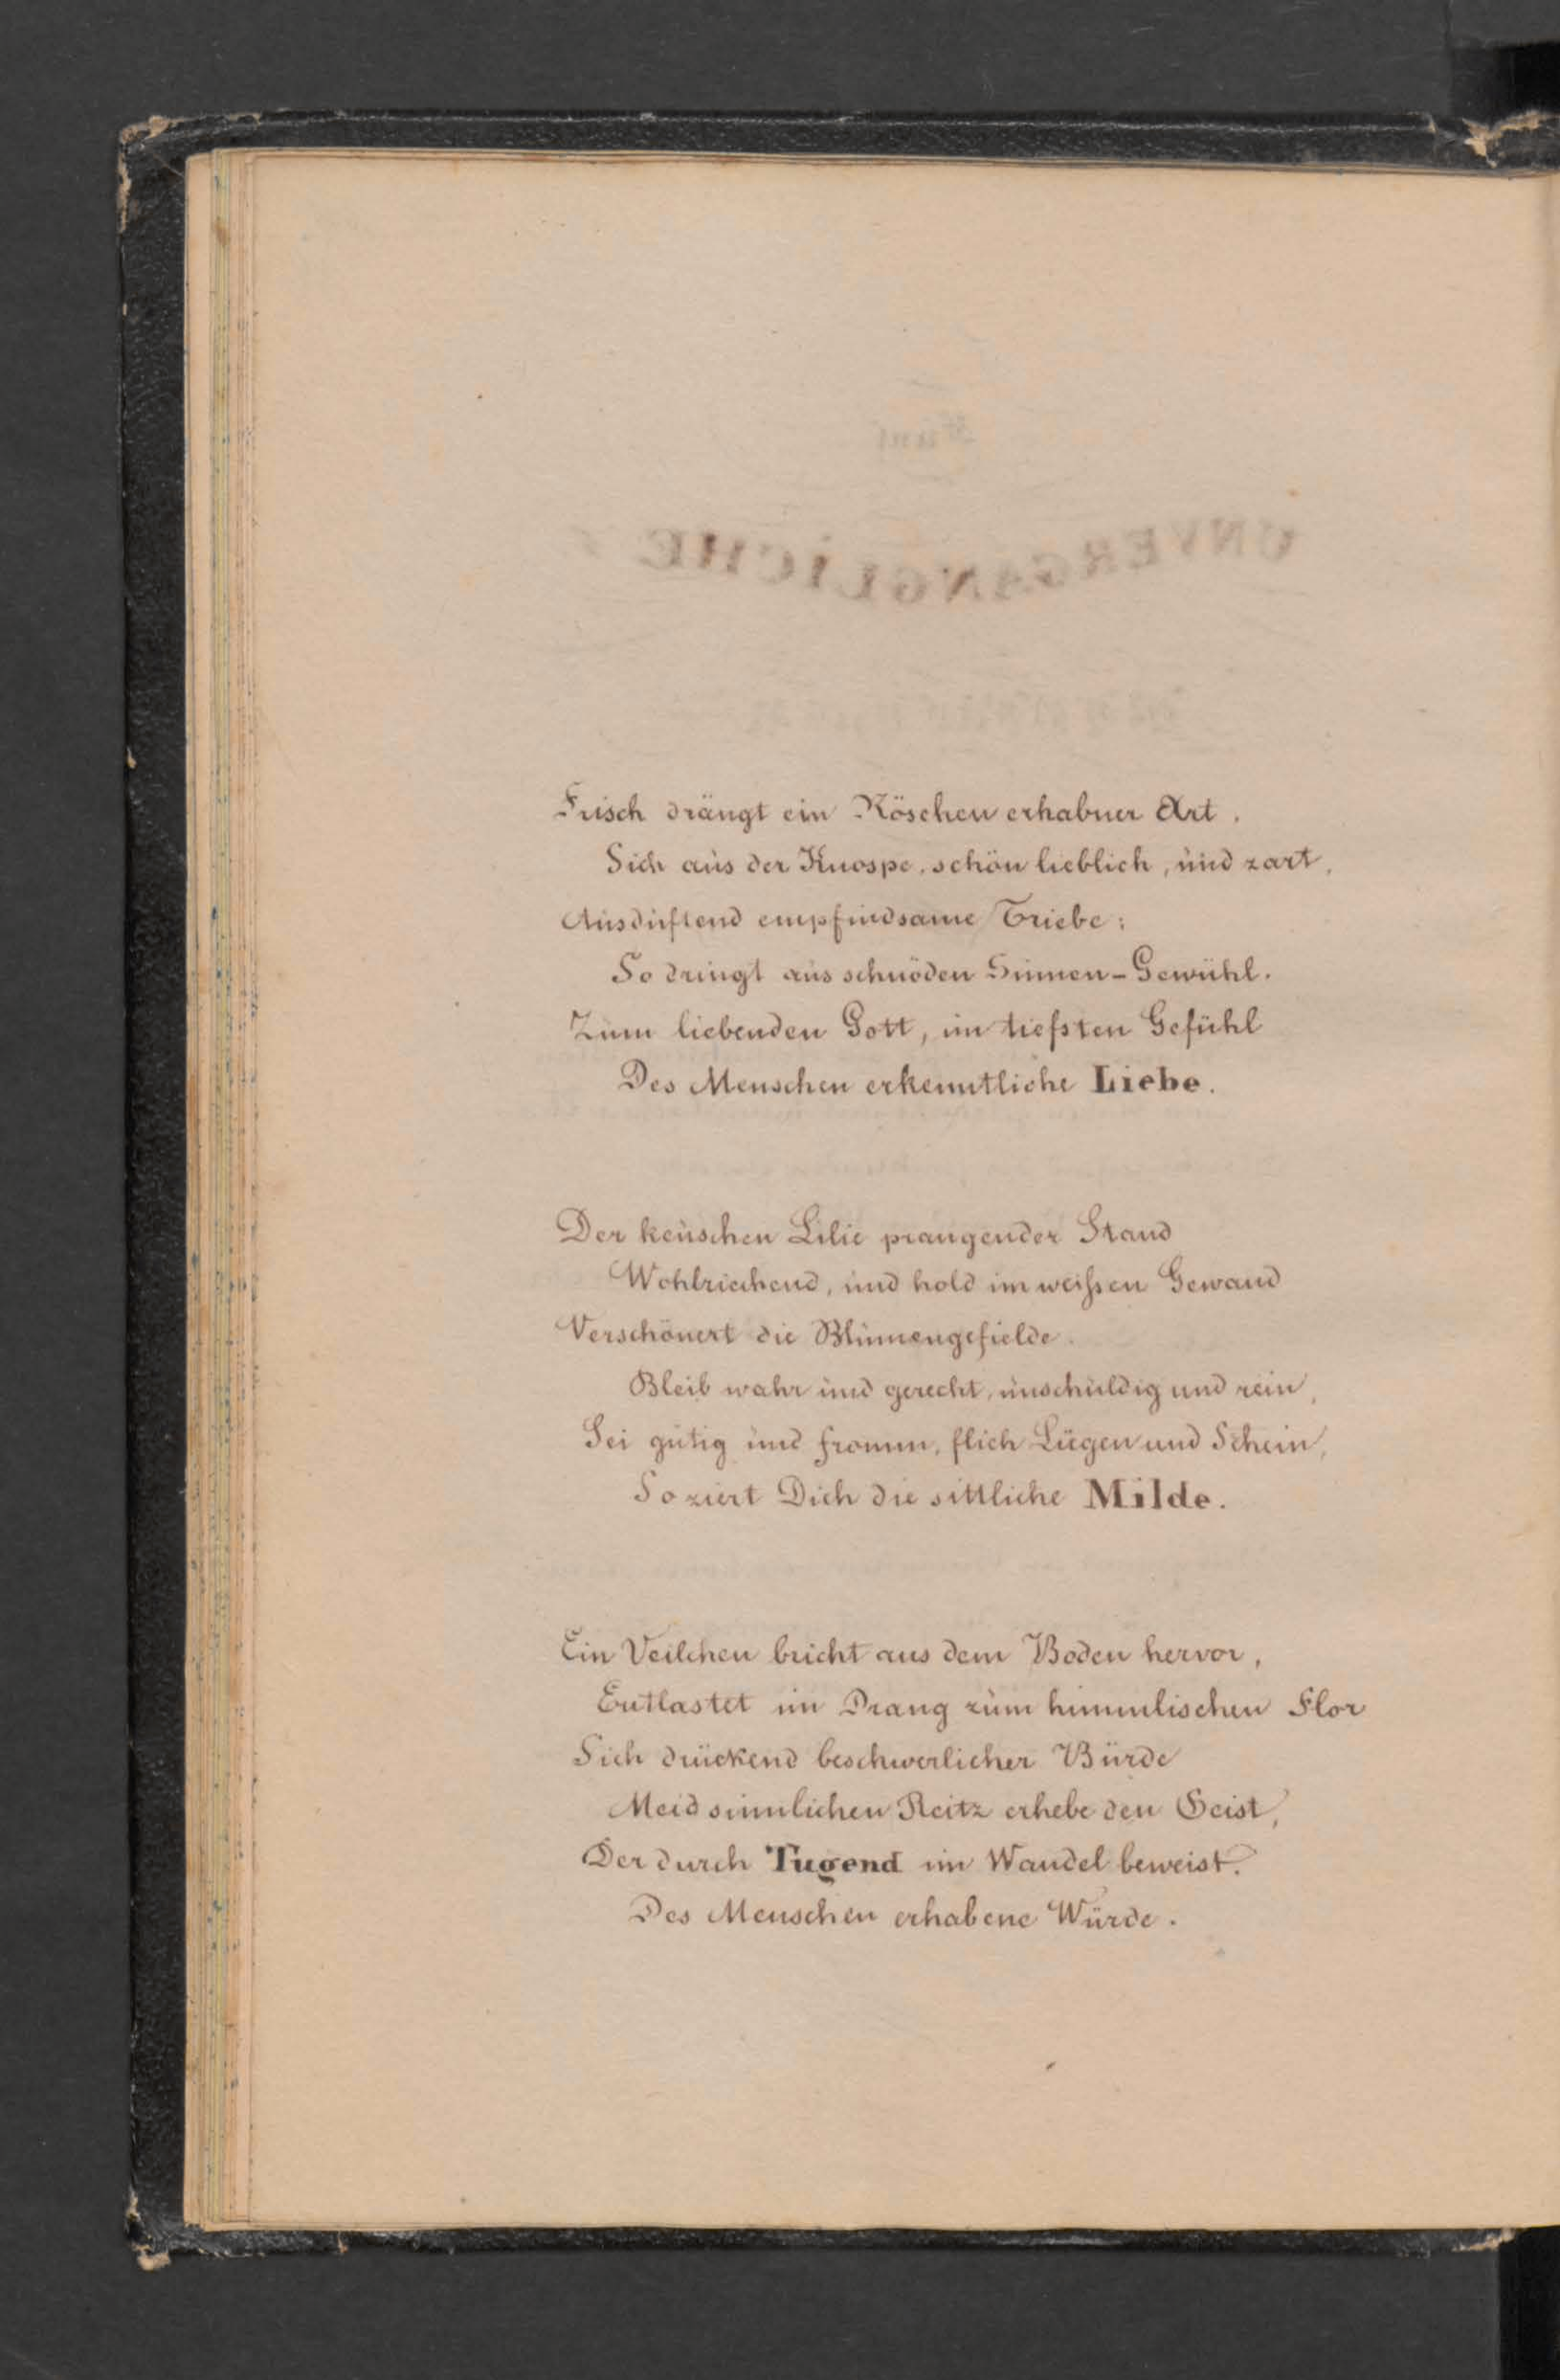 Fünf
UNVERGÄNGLICHE
Frisch drängt ein Röschen erhabner Art,
Sich aus der Knospe, schön lieblich, und zart,
Ausduftend empfindsame Triebe;
So dringt aus schnöden Sinnen-Gewühl.
Zum liebenden Gott, im tiefsten Gefühl
Des Menschen erkenntliche Liebe.
Der keuschen Lilie prangender Stand
Wohlriechend, und hold im weißen Gewand
Verschönert die Blumengefielde.
Bleib wahr und gerecht, unschuldig und rein,
Sei gütig und fromm, flieh Lügen und Schein,
So ziert Dich die sittliche Milde.
Ein Veilchen bricht aus dem Boden hervor,
Entlastet im Drang zum himmlischen Flor
Sich drückend beschwerlicher Bürde
Meid sinnlichen Reitz erhebe den Geist,
Der durch Tugend im Wandel beweist.
Des Menschen erhabene Würde.